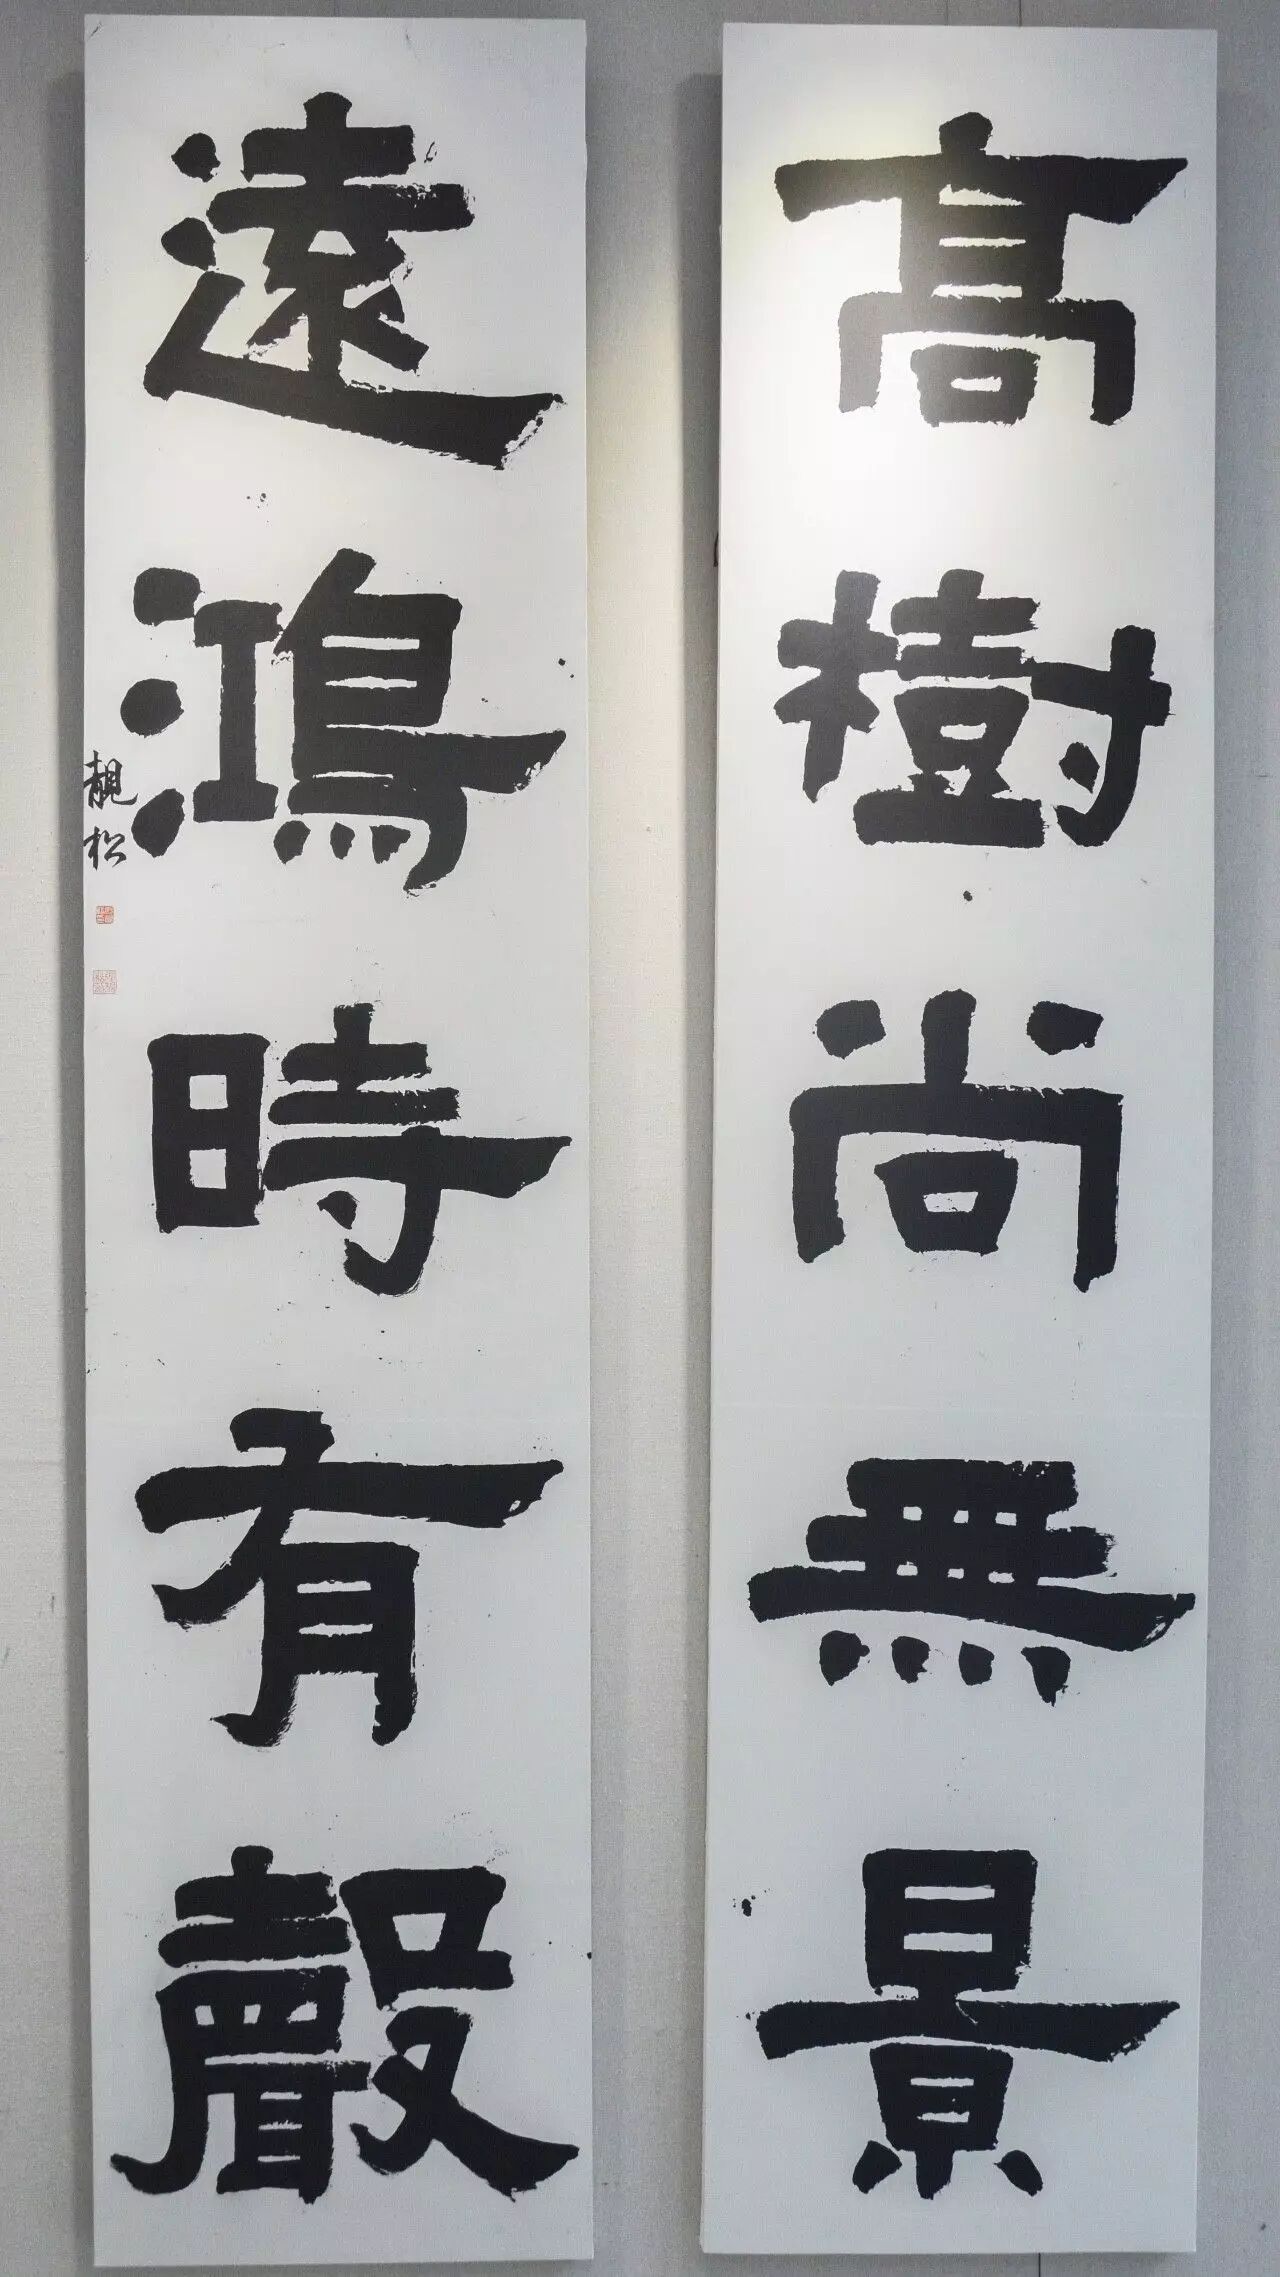 高樹尚無景
遠鴻時有聲
靚松